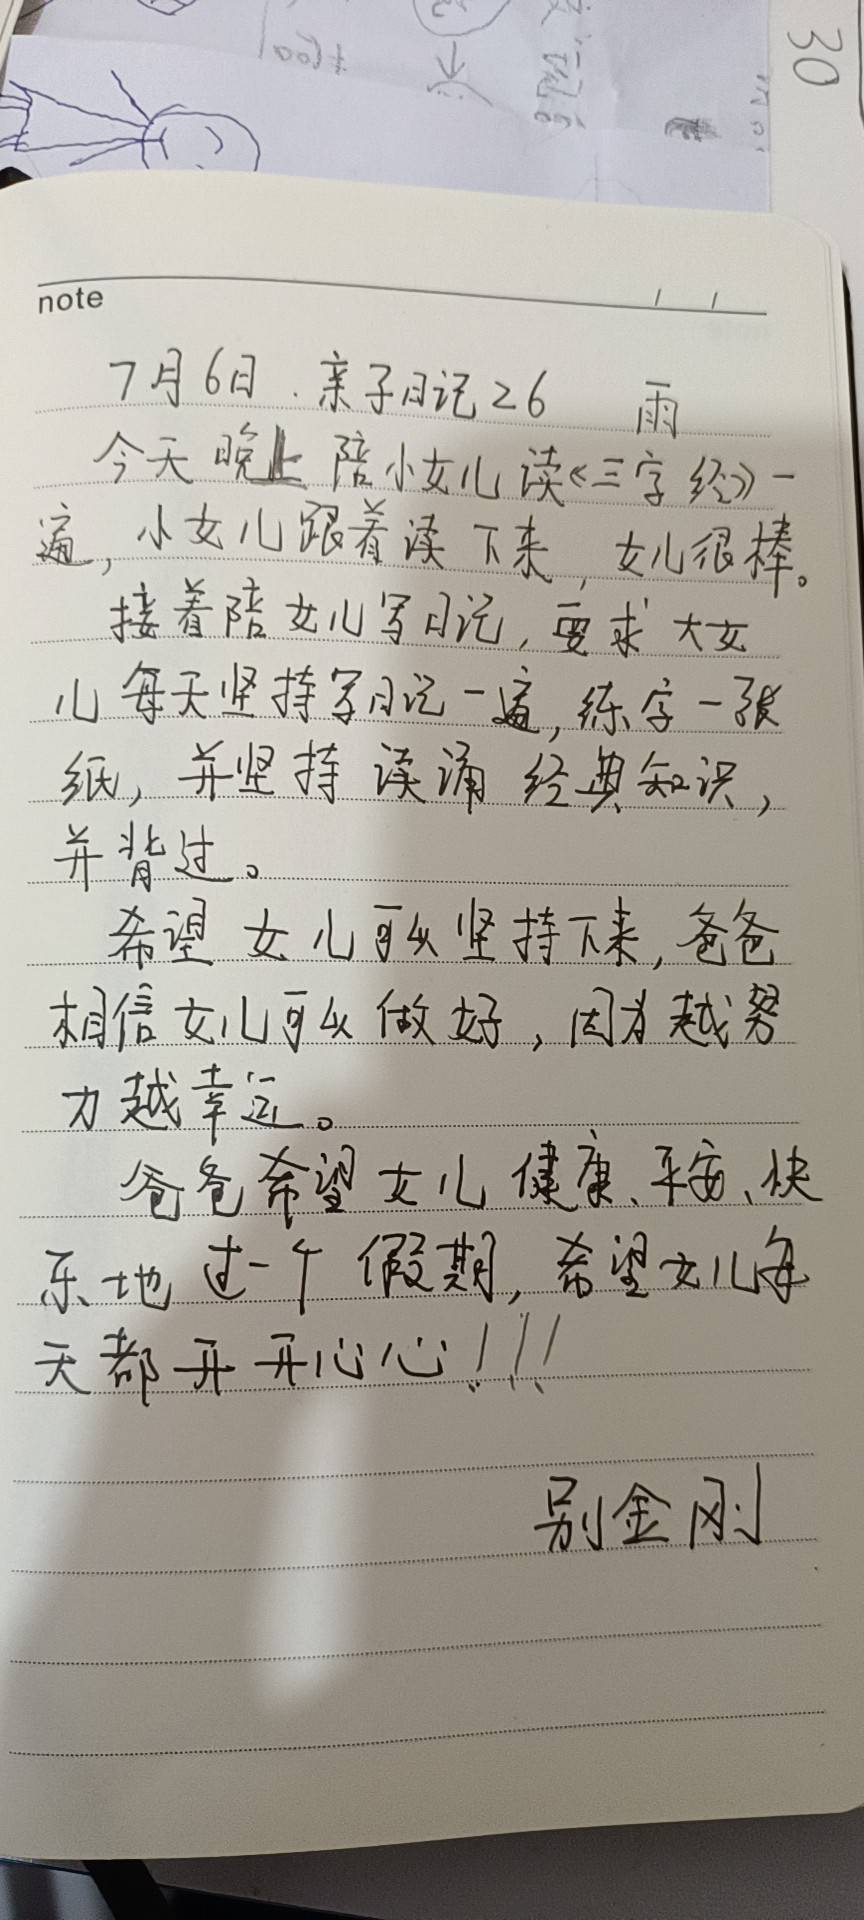 30
+600
note
7月6日.亲子日记26 雨
今天晚上陪小女儿读《三字经》一
遍,小女儿跟着读下来,女儿很棒。
接着陪女儿写日记,要求大女
儿每天坚持写日记一遍,练字一张
纸,并坚持读诵经典知识,
并背过。
希望女儿可以坚持下来,爸爸
相信女儿可以做好,因为越努
力越幸运。
爸爸希望女儿健康、平安、快
乐地过一个假期,希望女儿每
天都开开心心!!!
别金刚